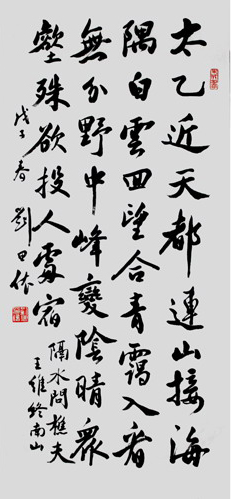 太乙近天都連山接海
隅白雲回望合青靄入看
無分野中峰變陰晴眾
壑殊欲投人處宿
隔水問樵夫
王維終南山
戊子春
劉